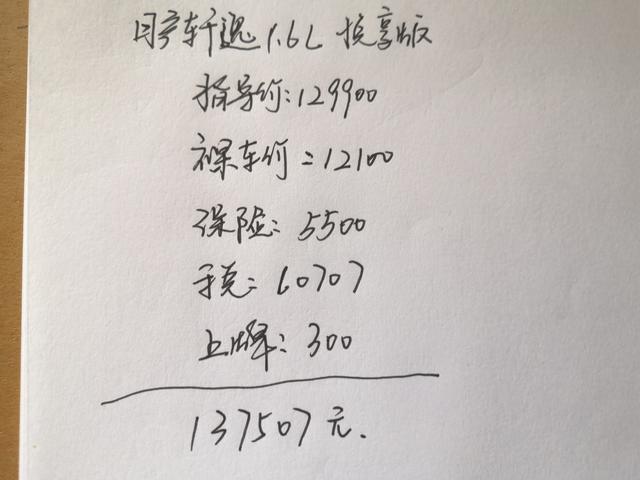 日产轩逸1.6L 悦享版
指导价:129900
裸车价:12100
保险:5500
车税:10707
上牌:300
137507元.